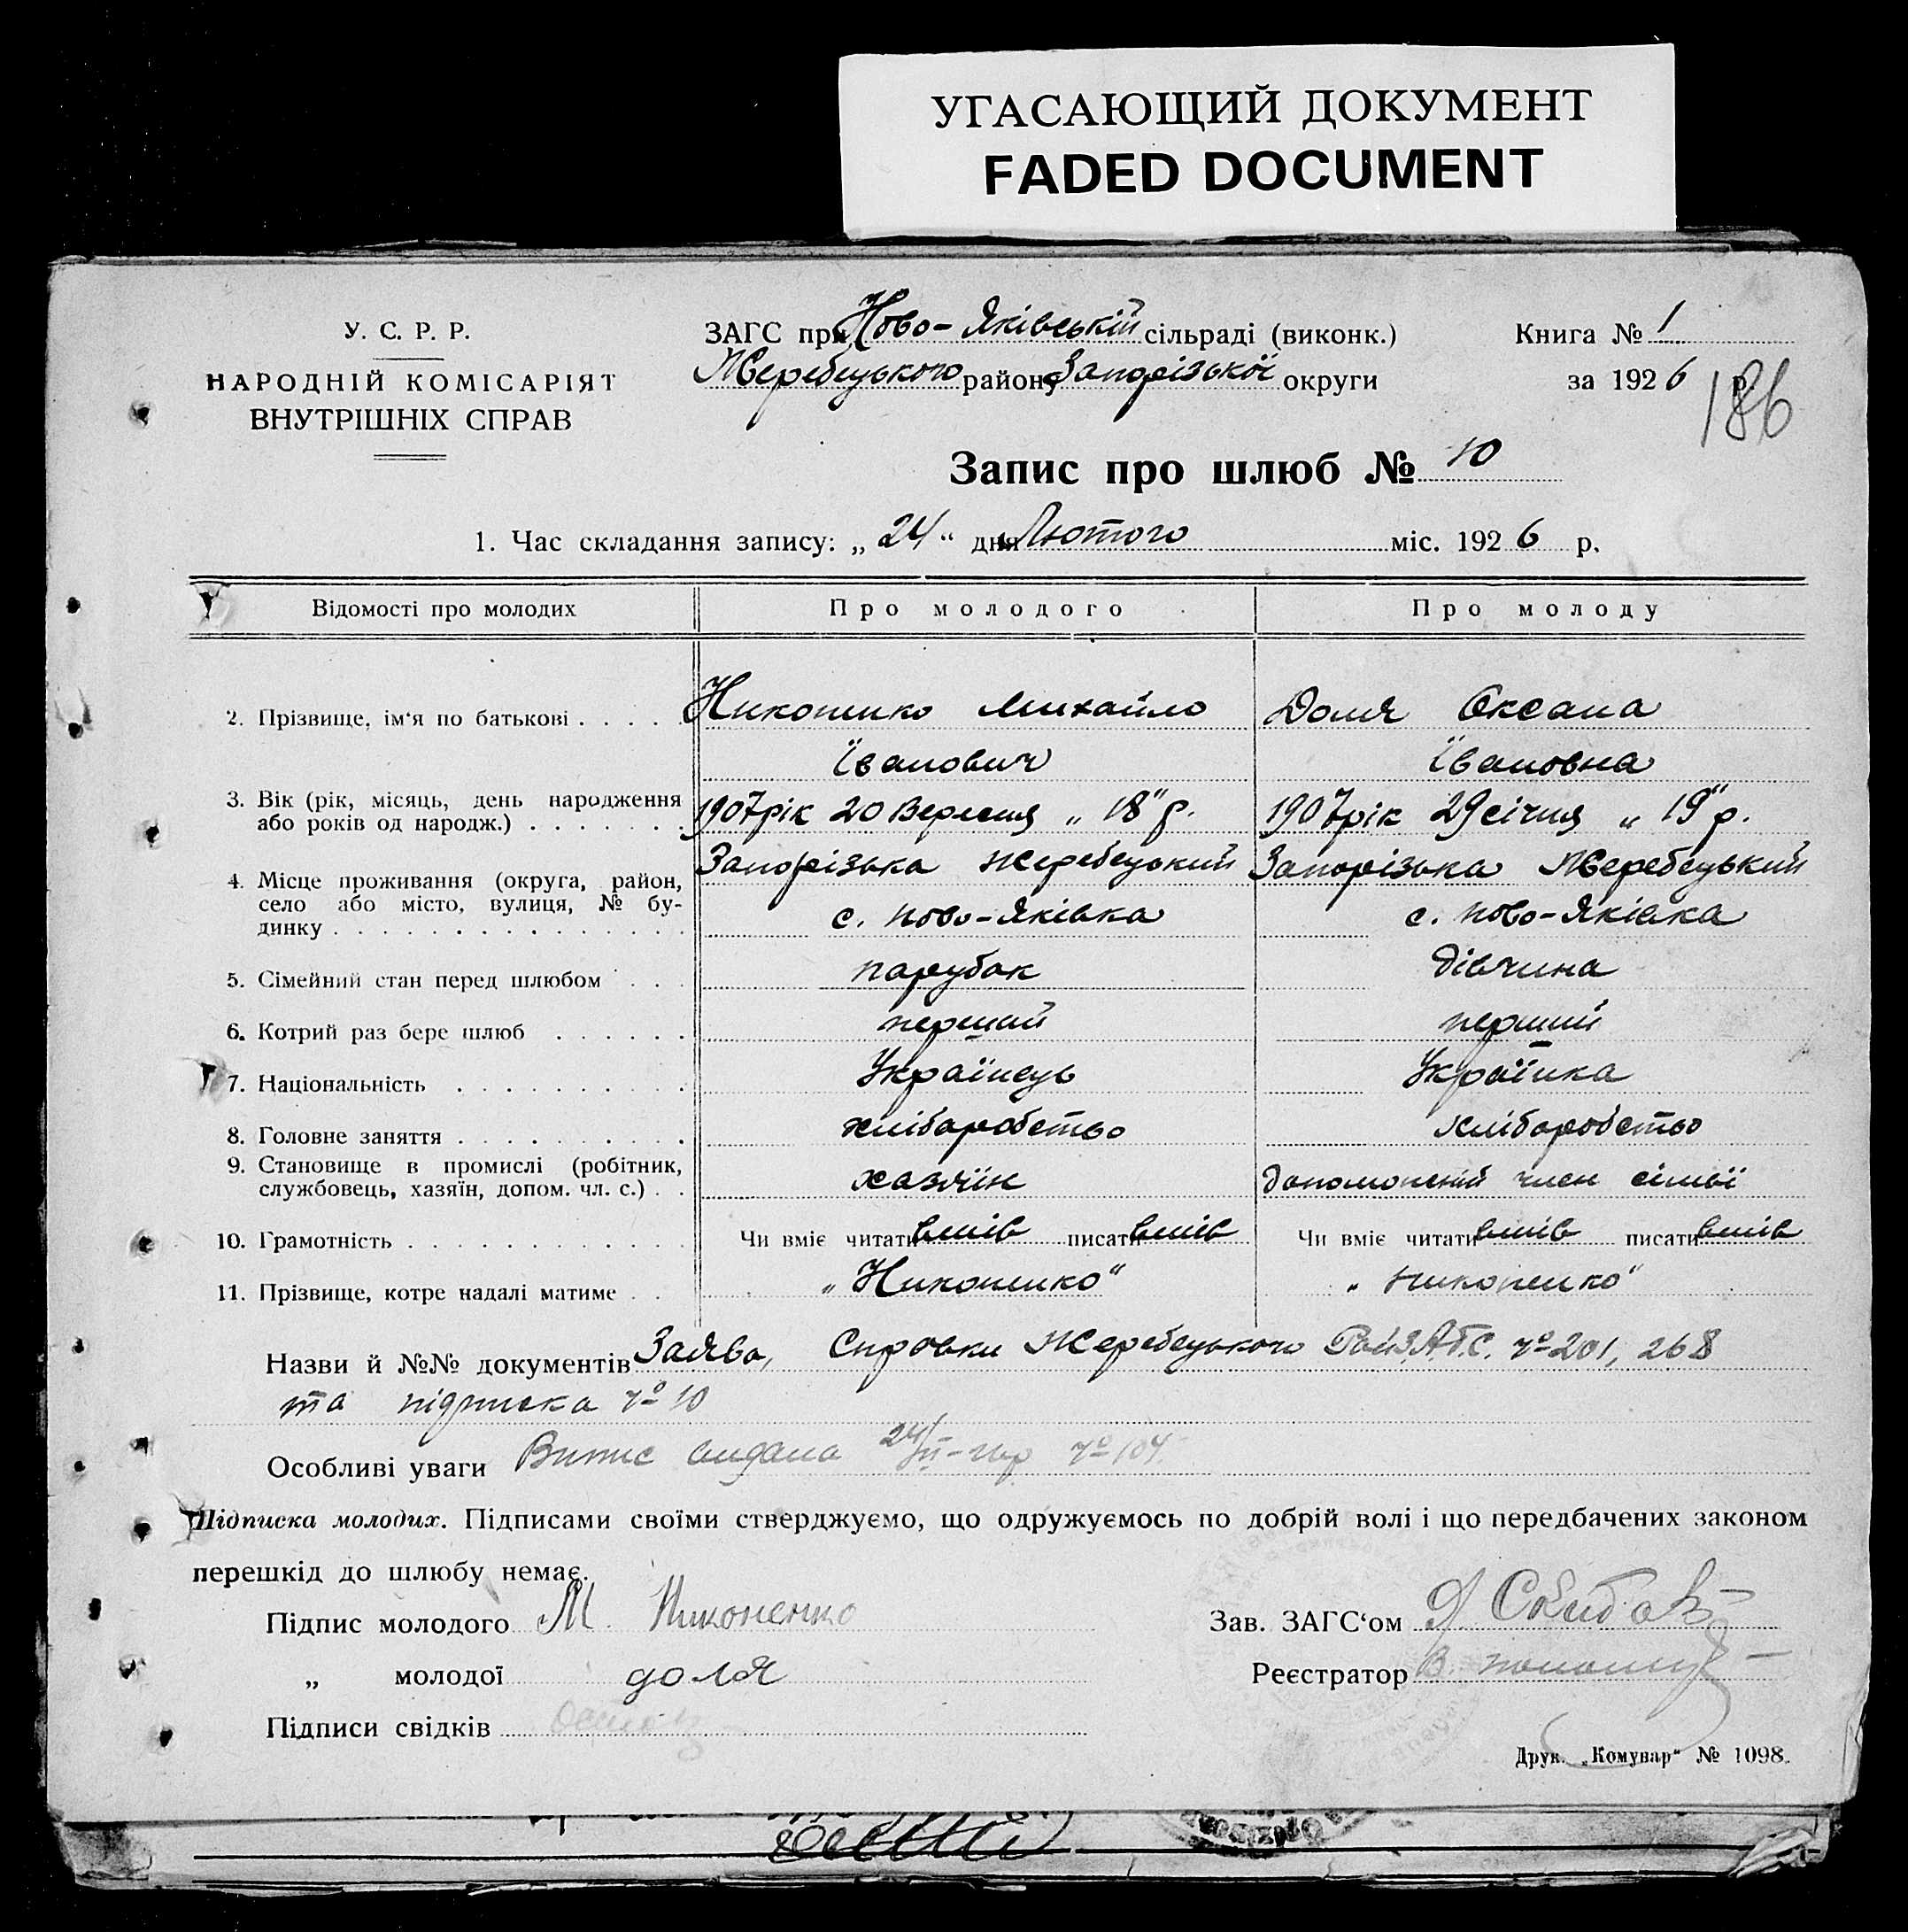 УГАСАЮЩИЙ ДОКУМЕНТ
FADED DOCUMENT
У. С. Р. Р.
НАРОДНІЙ КОМІСАРІЯТ
ВНУТРІШНІХ СПРАВ
ЗАГС при Ново-Яківській сільраді (виконк.)
Жеребецького району Запорізької округи
Книга № 1
за 1926 р.
186
Запис про шлюб № 10
1. Час складання запису: „24“ дня Лютого міс. 1926 р.
Відомості про молодих Про молодого Про молоду
2. Прізвище, ім‘я по батькові . . . . . Никоненко Михайло Доля Оксана
Іванович Івановна
3. Вік (рік, місяць, день народження 1907 рік 20 Вересня „ 18" р. 1907 рік 29 січня „ 19" р.
або років од народж.) . . . . . . .
4. Місце проживання (округа, район, Запорізька Жеребецький Запорізька Жеребецький
село або місто, вулиця, № бу- с. Ново-Яківка с. Ново-Яківка
динку . . . . . . . . . . . . . . .
5. Сімейний стан перед шлюбом . . . парубок дівчина
6. Котрий раз бере шлюб . . . . . . перший перший
7. Національність . . . . . . . . . Українець Українка
8. Головне заняття . . . . . . . . . . хліборобство хліборобство
9. Становище в промислі (робітник,
службовець, хазяїн, допом. чл. с.) . . хазяїн допоможений член сімьї
10. Грамотність . . . . . . . . . . . . Чи вміє читати вмів писати вмів Чи вміє читати вмів писати вмів
11. Прізвище, котре надалі матиме . . „Никоненко" „Никоненко"
Назви й №№ документів Заява, Справки Жеребецького РайЗАГС. № 201, 268
та підписка № 10
Особливі уваги Випис видана 24/II № 104
Підписка молодих. Підписами своїми стверджуємо, що одружуємось по добрій волі і що передбачених законом
перешкід до шлюбу немає.
Підпис молодого М. Никоненко
„ молодої доля
Підписи свідків
Зав. ЗАГС‘ом
Реєстратор В.
Друк. „Комунар“ № 1098.